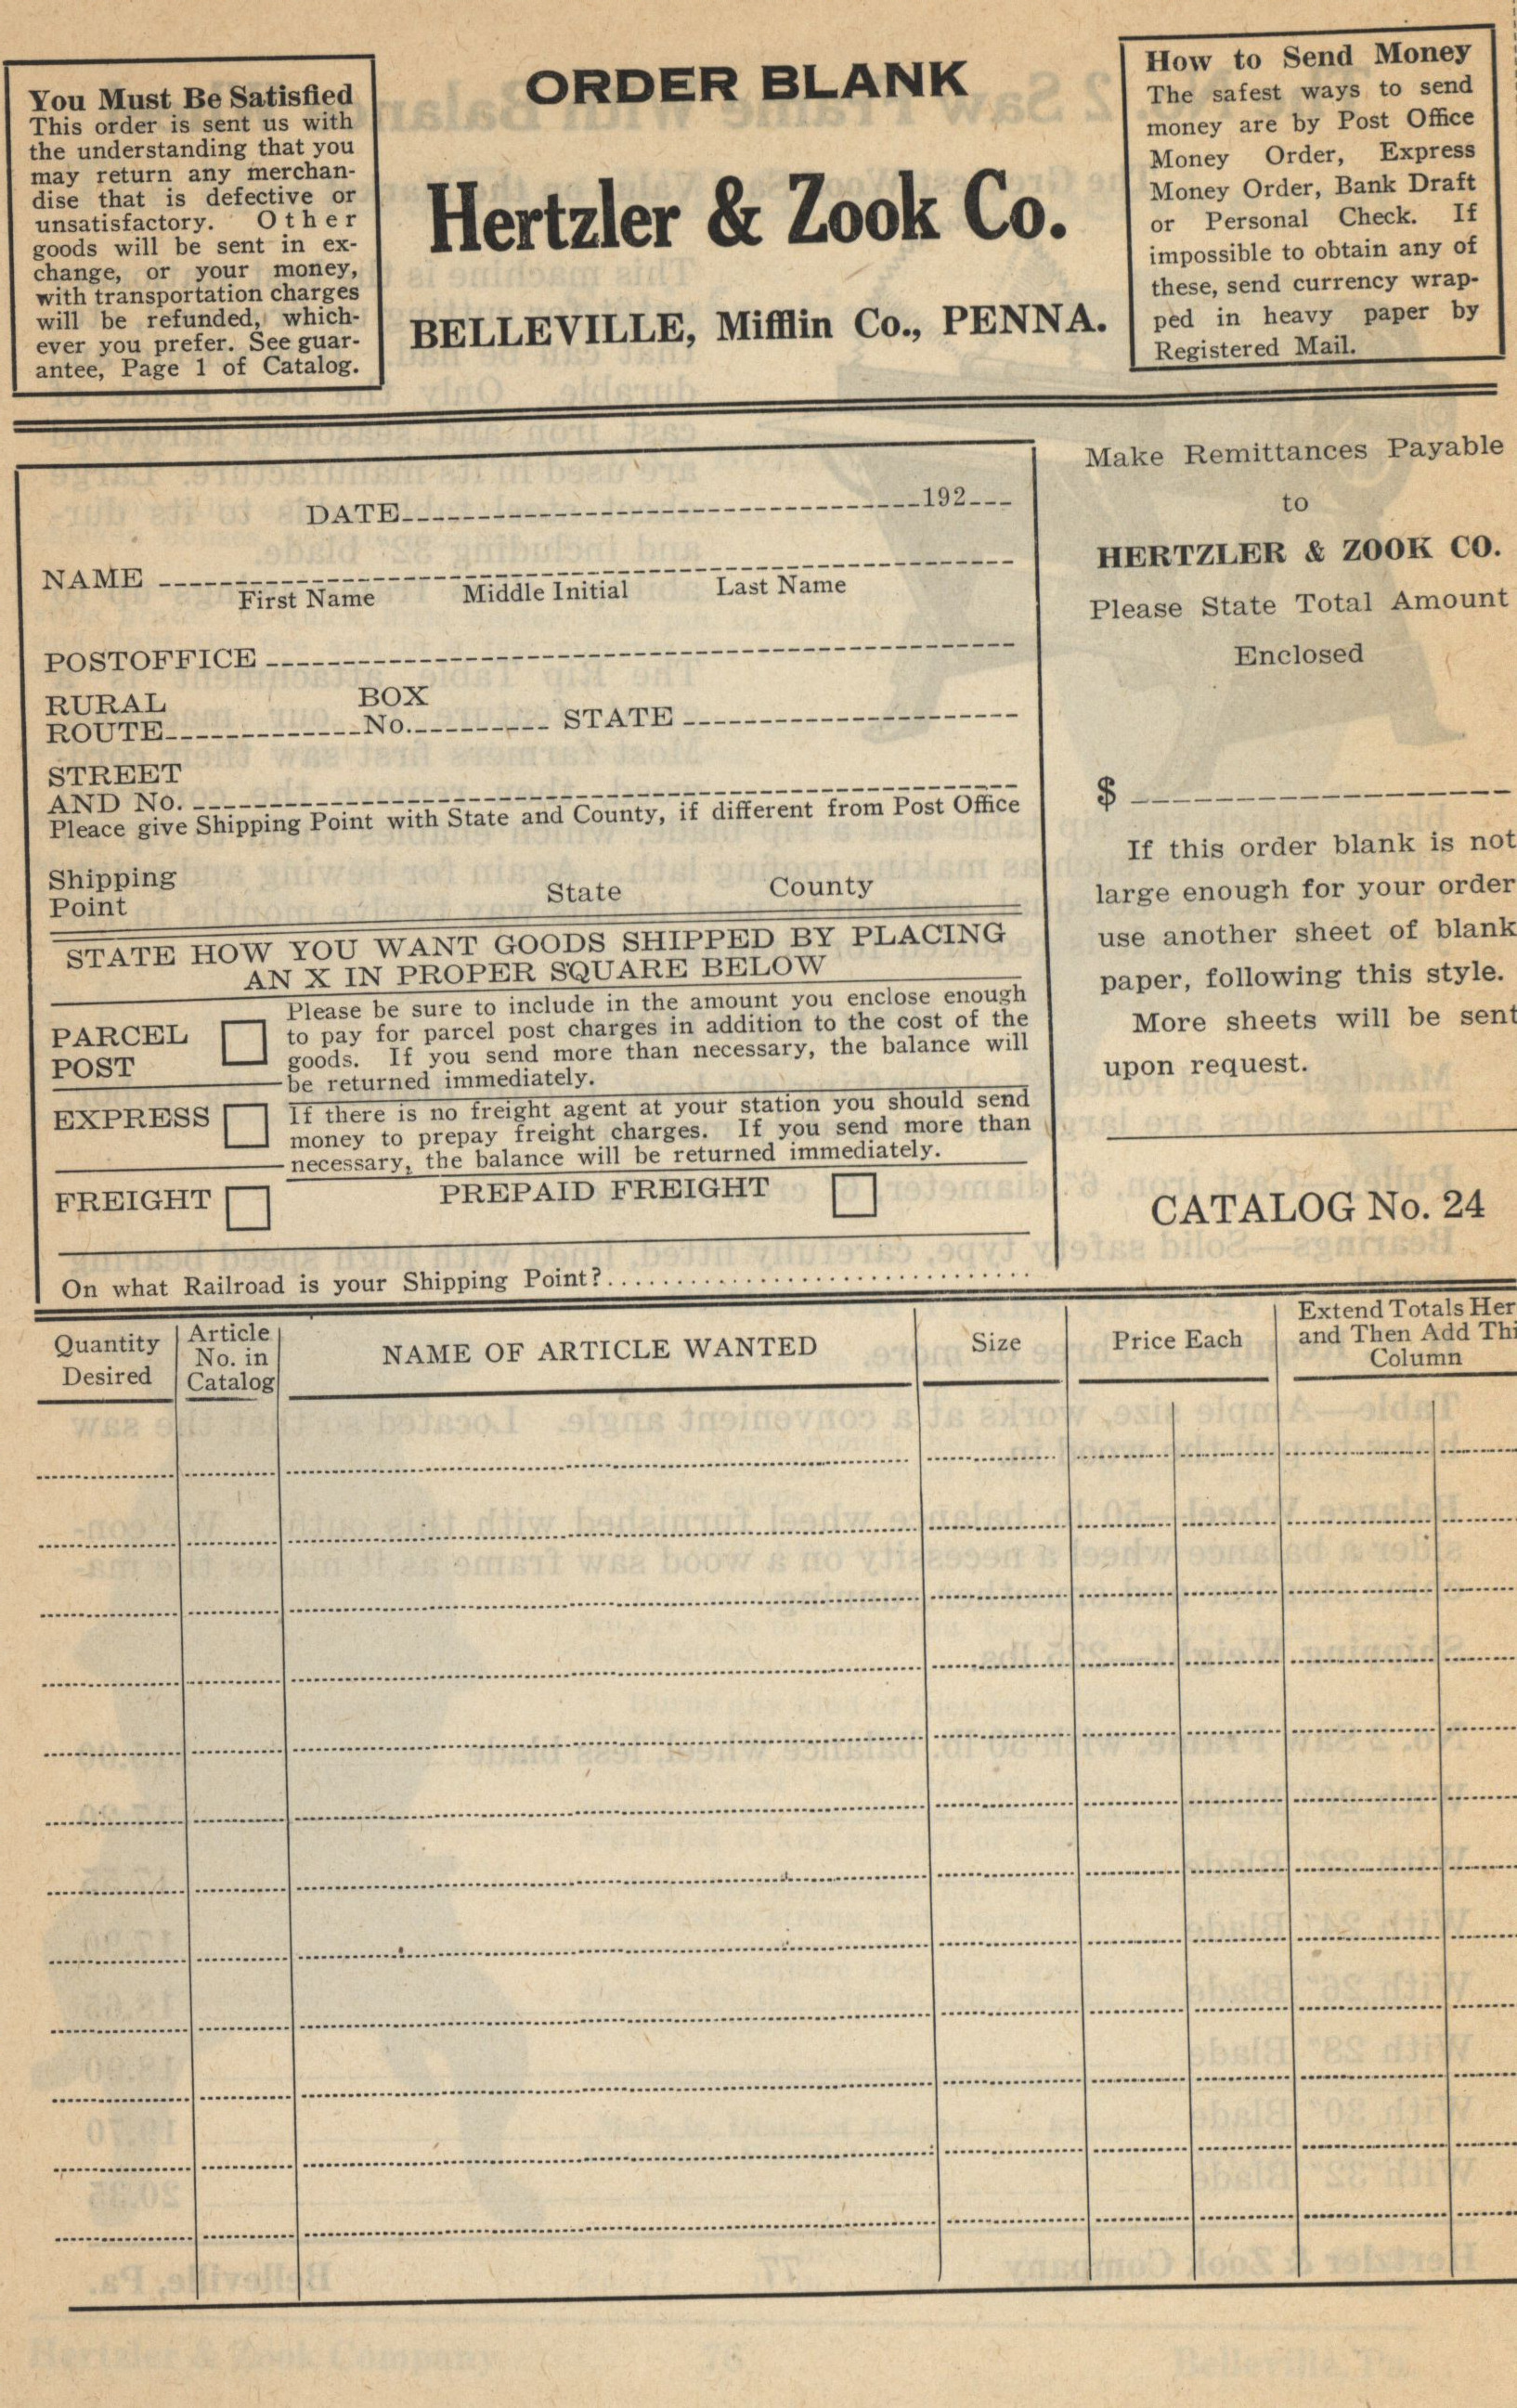 You Must Be Satisfied
This order is sent us with
the understanding that you
may return any merchan-
dise that is defective or
unsatisfactory. Other
goods will be sent in ex-
change, or your money,
with transportation charges
will be refunded, which-
ever you prefer. See guar-
antee, Page 1 of Catalog.
ORDER BLANK
Hertzler & Zook Co.
BELLEVILLE, Mifflin Co., PENNA.
How to Send Money
The safest ways to send
money are by Post Office
Money Order, Express
Money Order, Bank Draft
or Personal Check. If
impossible to obtain any of
these, send currency wrap-
ped in heavy paper by
Registered Mail.
DATE 192
NAME
First Name Middle Initial Last Name
POSTOFFICE
RURAL BOX
ROUTE No. STATE
STREET
AND No.
Pleace give Shipping Point with State and County, if different from Post Office
Shipping
Point State County
STATE HOW YOU WANT GOODS SHIPPED BY PLACING
AN X IN PROPER SQUARE BELOW
PARCEL
POST
Please be sure to include in the amount you enclose enough
to pay for parcel post charges in addition to the cost of the
goods. If you send more than necessary, the balance will
be returned immediately.
EXPRESS
If there is no freight agent at your station you should send
money to prepay freight charges. If you send more than
necessary, the balance will be returned immediately.
FREIGHT PREPAID FREIGHT
On what Railroad is your Shipping Point?
Make Remittances Payable
to
HERTZLER & ZOOK CO.
Please State Total Amount
Enclosed
$
If this order blank is not
large enough for your order
use another sheet of blank
paper, following this style.
More sheets will be sent
upon request.
CATALOG No. 24
Quantity
Desired
Article
No. in
Catalog
NAME OF ARTICLE WANTED
Size
Price Each
Extend Totals Her
and Then Add Thi
Column